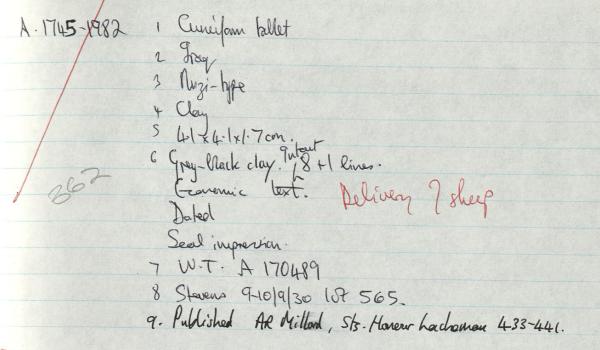 A. 1745-1982
1 Cuneiform tablet
2 Iraq
3 Nuzi-type
4 Clay
5 4.1 x 4.1 x 1.7 cm.
6 Grey-black clay. Intact 8 + 1 lines.
Economic text. Delivery 7 sheep
862
Dated
Seal impression.
7 W.T. A 170489
8 Stevens 9-10/9/30 lot 565.
9. Published AR Millard, Sts. Honour Lacheman 433-441.